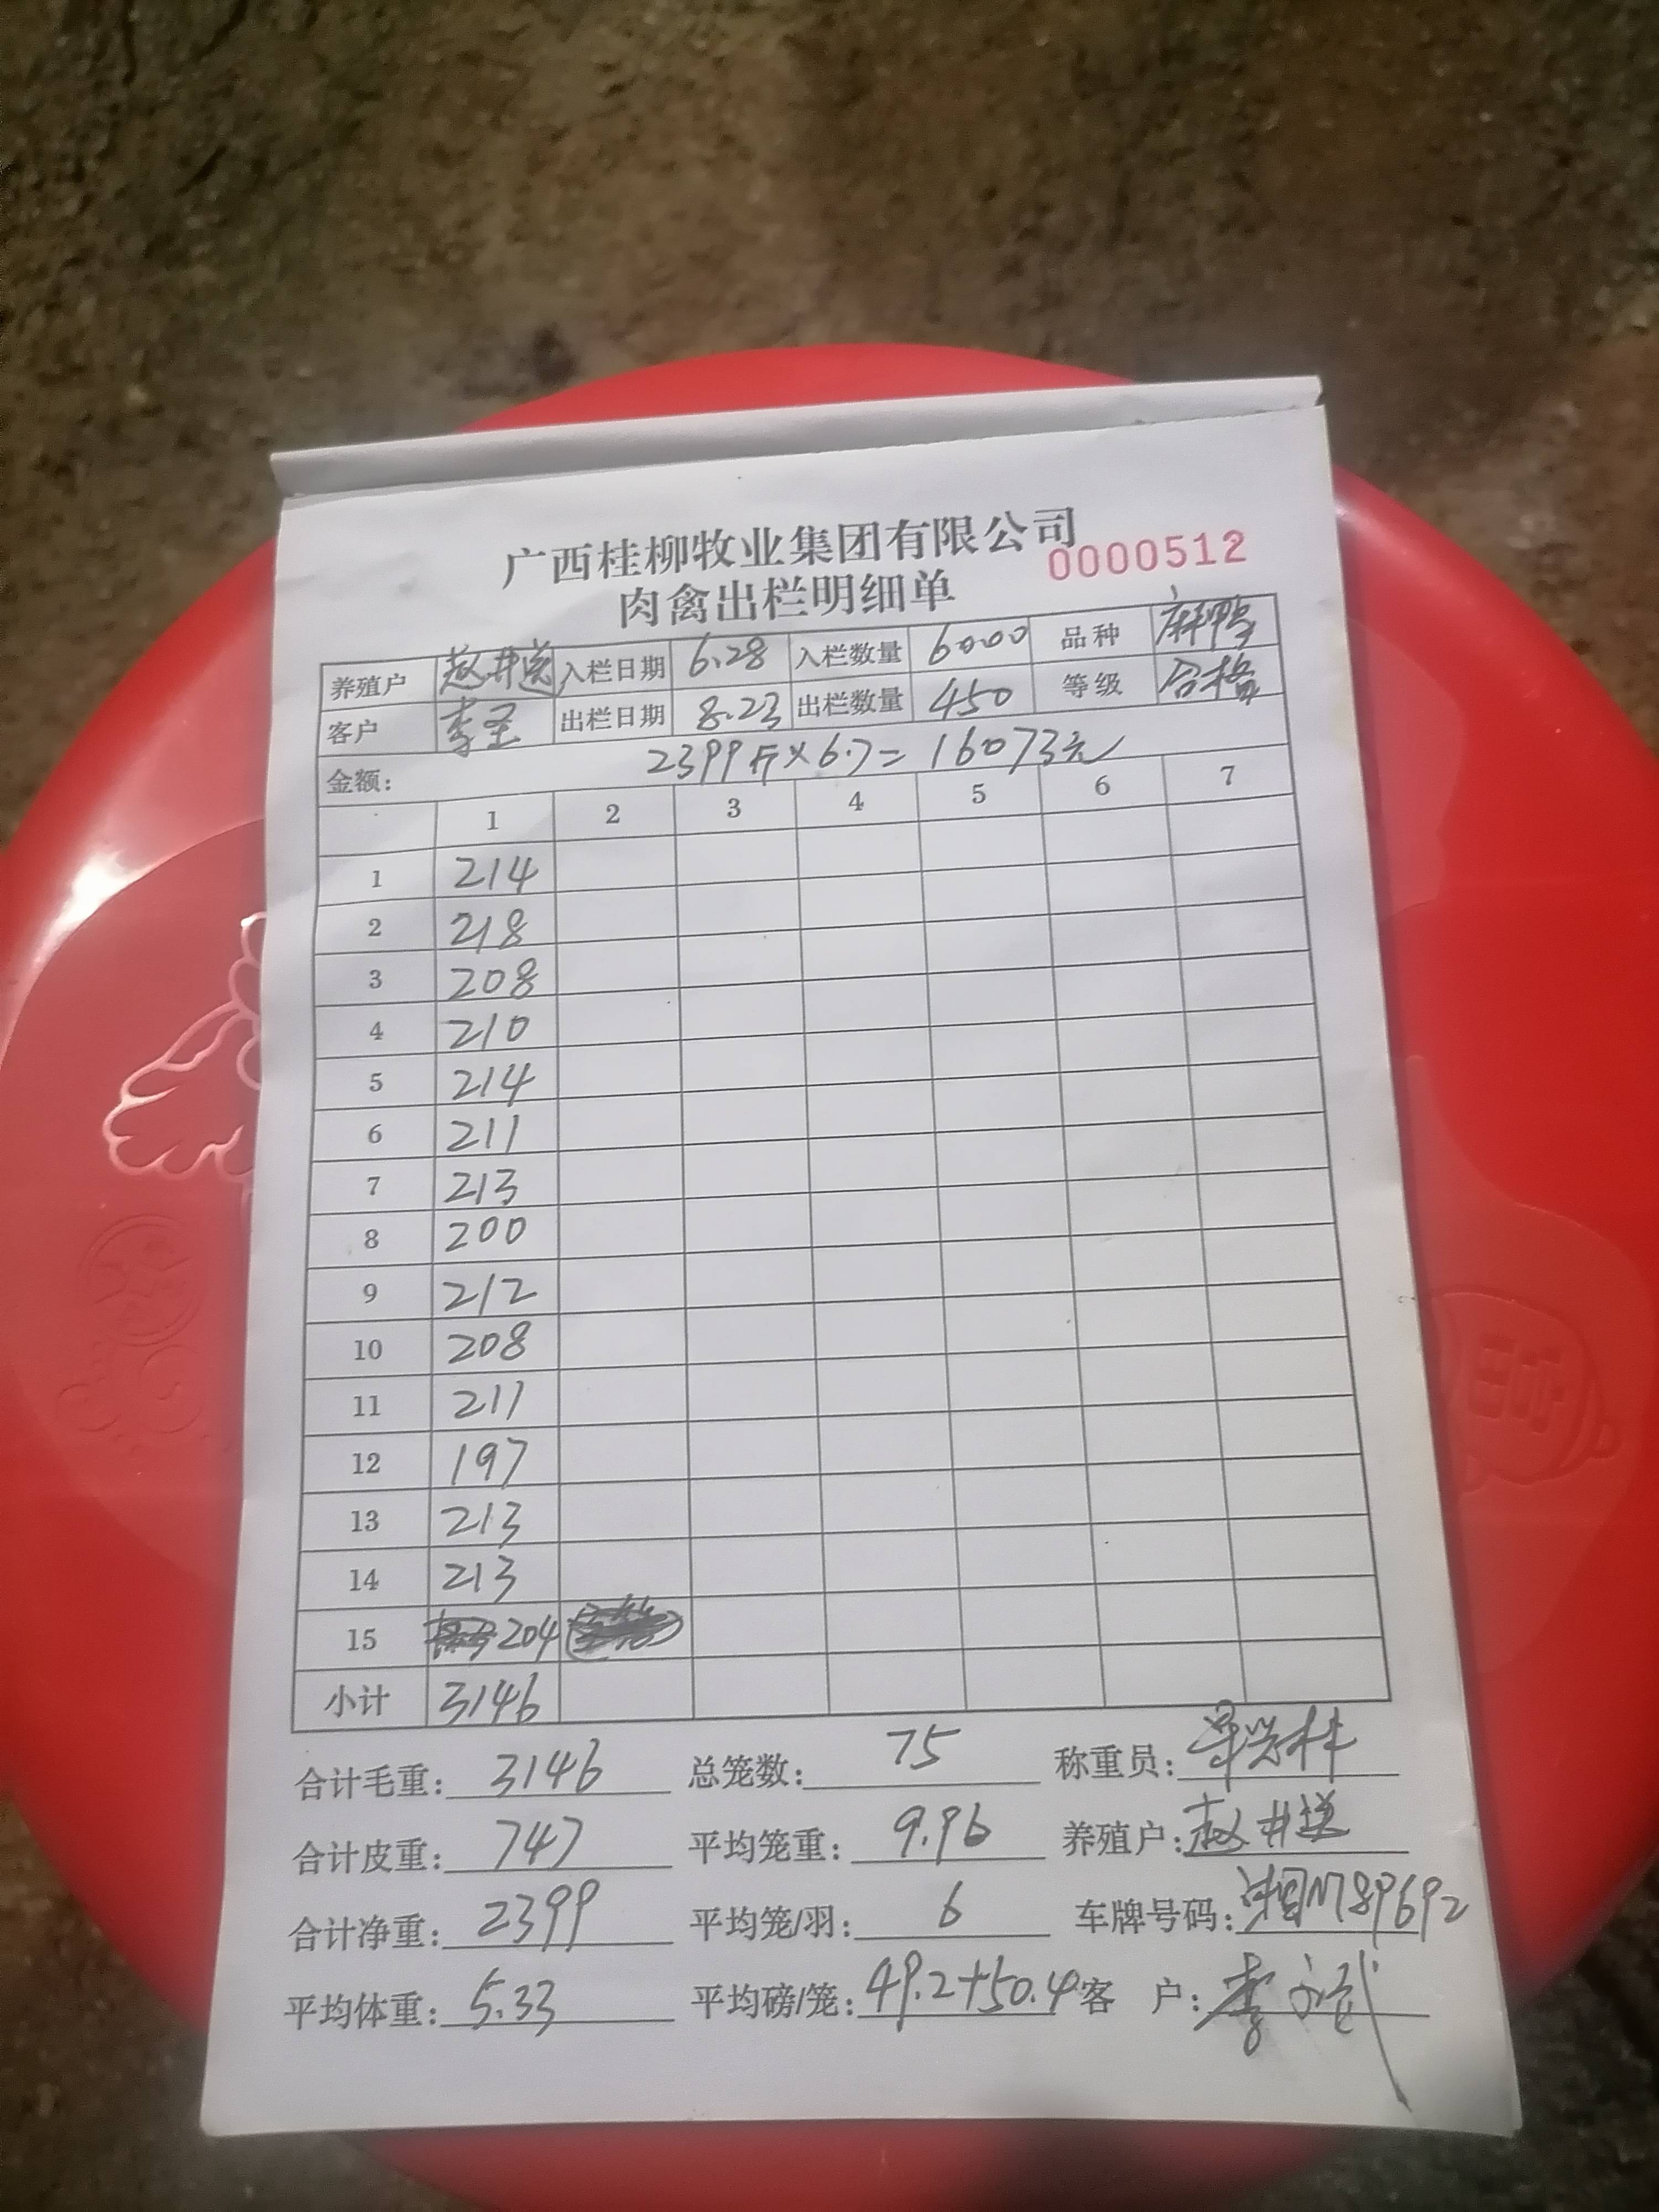 广西桂柳牧业集团有限公司
0000512
肉禽出栏明细单
养殖户 赵井送 入栏日期 6.28 入栏数量 6000 品种 麻鸭
客户 李圣 出栏日期 8.23 出栏数量 450 等级 合格
金额: 2399斤×6.7=16073元
1 2 3 4 5 6 7
1 214
2 218
3 208
4 210
5 214
6 211
7 213
8 200
9 212
10 208
11 211
12 197
13 213
14 213
15 204
小计 3146
合计毛重: 3146 总笼数: 75 称重员:
合计皮重: 747 平均笼重: 9.96 养殖户: 赵井送
合计净重: 2399 平均笼/羽: 6 车牌号码: 湘M89692
平均体重: 5.33 平均磅/笼: 49.2+50.4 客 户: 李